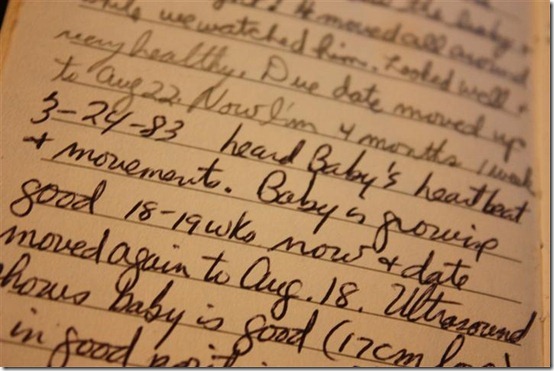 the baby +
while we watched him. Looked well +
very healthy. Due date moved up
to Aug 22. Now I'm 4 months 1 week
3-24-83 heard Baby's heartbeat
+ movements. Baby is growing
good 18-19 wks now + date
moved again to Aug. 18. Ultrasound
shows baby is good (17cm
in good